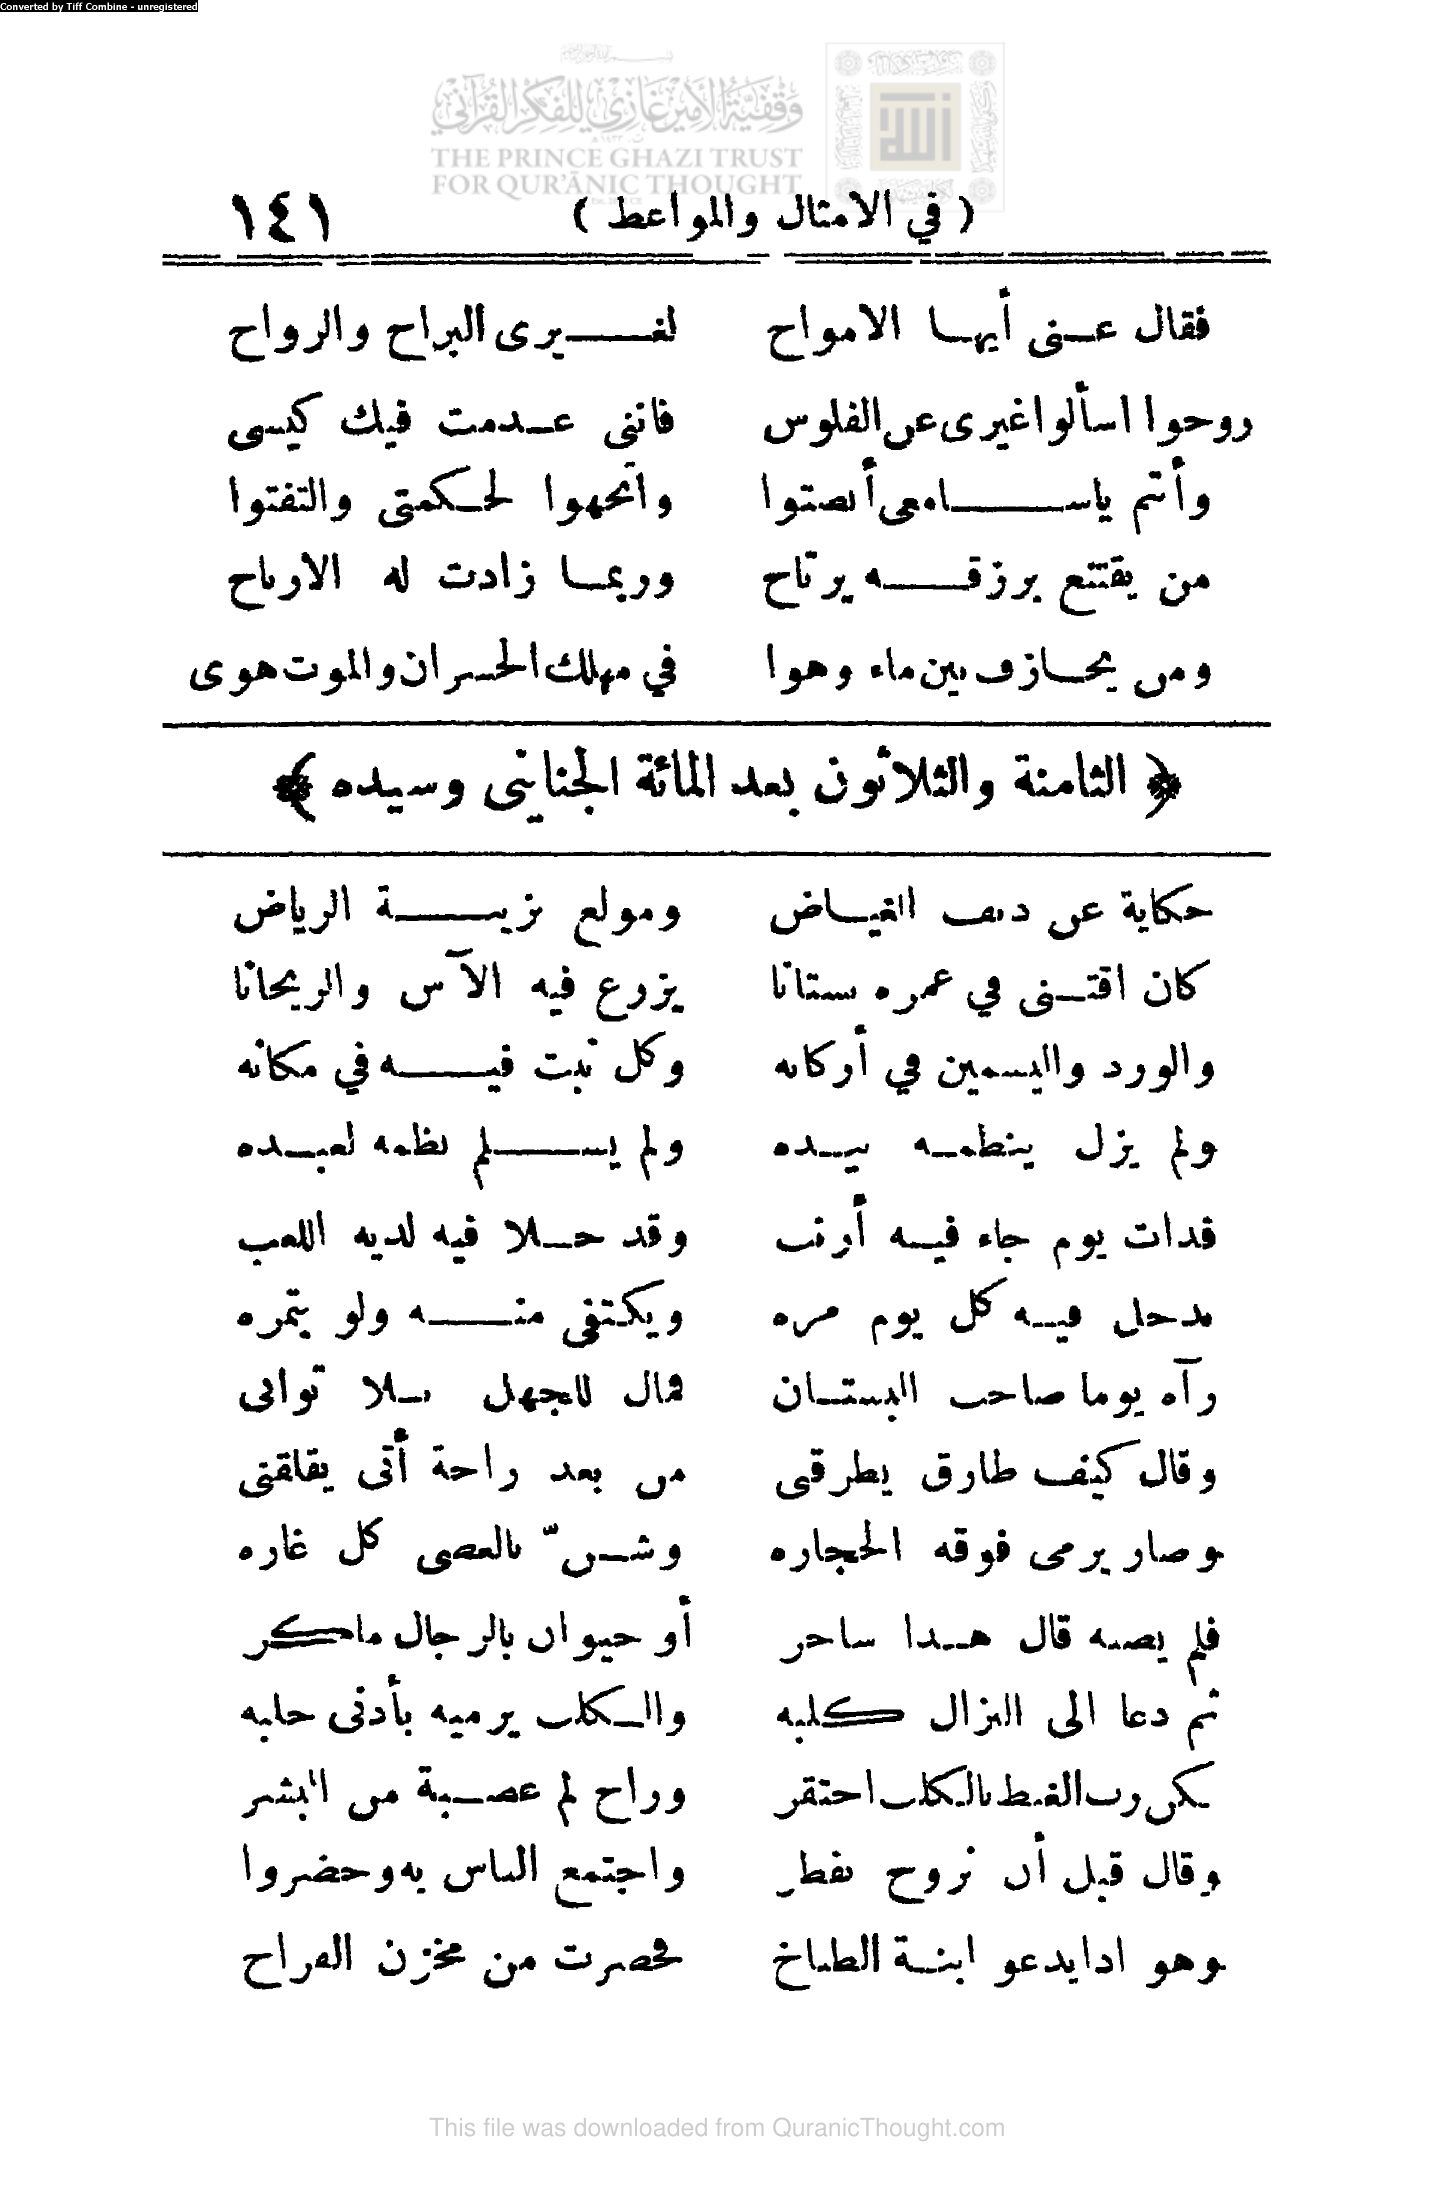 Converted by Tiff Combine - unregistered
وقفية الأمير غازي للفكر القرآني
THE PRINCE GHAZI TRUST
FOR QUR'ĀNIC THOUGHT
( في الامثال والمواعظ ) ١٤١
فقال عنى أيها الامواح لغيرى البراح والرواح
روحوا اسألوا غيرى عن الفلوس فاننى عدمت فيك كيسى
وأنتم ياسامعى أنصتوا واتجهوا لحكمتى والتفتوا
من يقتنع برزقه يرتاح وربما زادت له الارباح
ومن يجازف بين ماء وهوا في مهلك الخسران والموت هوى
﴿ الثامنة والثلاثون بعد المائة الجناينى وسيده ﴾
حكاية عن دنف الغياض ومولع بزينة الرياض
كان اقتنى في عمره بستانا يزرع فيه الآس والريحانا
والورد والياسمين في أركانه وكل نبت فيه في مكانه
ولم يزل ينظمه بيده ولم يسلم نظمه لعبده
فذات يوم جاء فيه أرنب وقد حلا فيه لديه اللعب
يدخل فيه كل يوم مره ويكتفى منه ولو بتمره
رآه يوما صاحب البستان فمال للجهل بلا توانى
وقال كيف طارق يطرقنى من بعد راحة أتى يقلقنى
وصار يرمى فوقه الحجاره وشنّ بالعصى كل غاره
فلم يصبه قال هذا ساحر أو حيوان بالرجال ماكر
ثم دعا الى النزال كلبه والكلب يرميه بأدنى حلبه
لكن رب الغيط بالكلب احتقر وراح لم عصبة من البشر
وقال قبل أن نروح نفطر واجتمع الناس به وحضروا
وهو اذا يدعو ابنة الطباخ فحضرت من مخزن الفراخ
This file was downloaded from QuranicThought.com